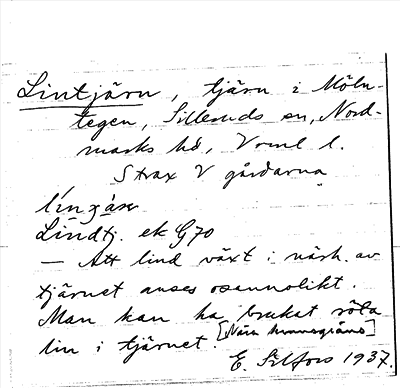 Lintjärn, tjärn i Möln-
tegen, Silleruds sn, Nord-
marks hd, Vrml l.
Strax V gårdarna
Lindtj. ek G70
— Att lind växt i närh. av
tjärnet anses osannolikt.
Man kan ha brukat röta
lin i tjärnet. [Nära
E. Silfors 1937.